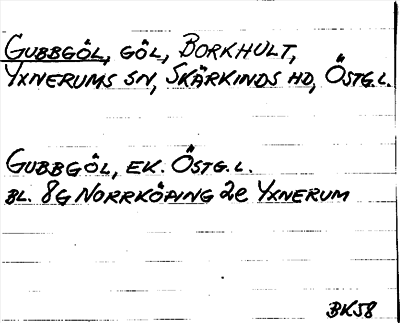 GUBBGÖL, GÖL, BORKHULT,
YXNERUMS SN, SKÄRKINDS HD, ÖSTG.L.
GUBBGÖL, EK. ÖSTG.L.
BL. 8G NORRKÖPING 2e YXNERUM
BK58